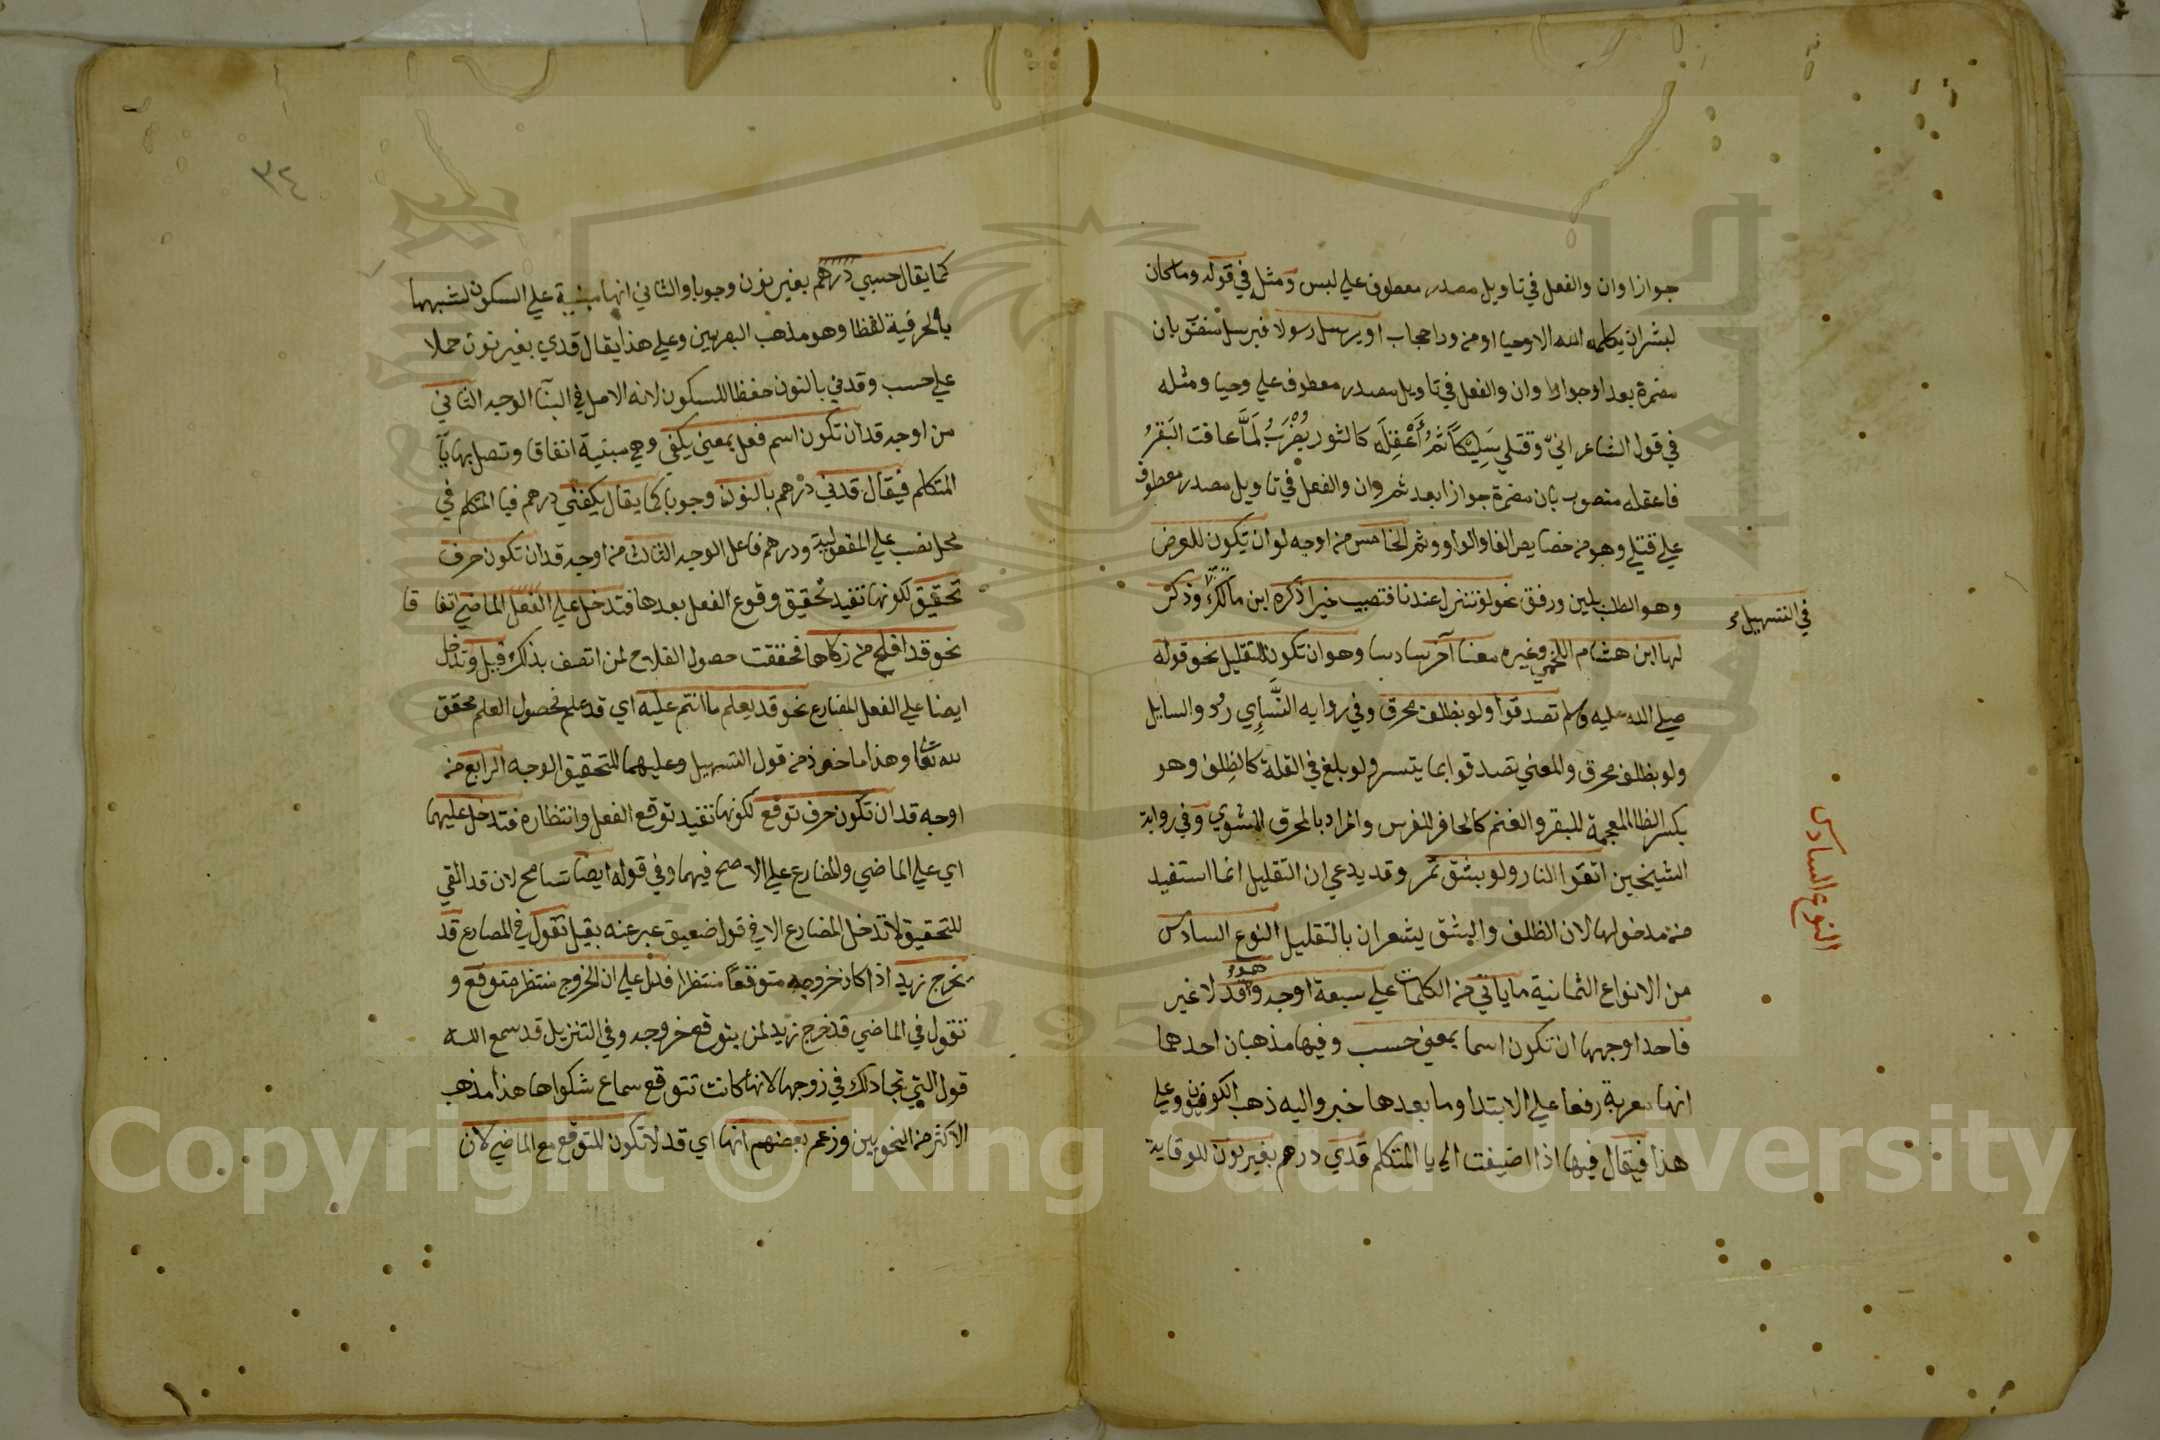 جوازا وان والفعل في تاويل مصدر معطوف علي لبس ومثل في قوله وماكان
لبشران يكلمه الله الا وحيا او من ورا حجاب او يرسل رسولا فيرسل منصوب بان
مضمرة بعد او جوازا وان والفعل في تاويل مصدر معطوف علي وحيا ومثله
في قول الشاعر انيّ وقتلي سَلِيْكاً ثمُ أَعْقِلَه كالثور يُضْرَبُ لَمَّا عافت البَقرُ
فاعقله منصوب بان مضمرة جوازا بعد ثم وان والفعل في تاويل مصدر معطوف
علي قتلي وهو من خصايص الفا والواو وثم الخامس من اوجه لو ان تكون للعرض
وهو الطلب بلين ورفق نحو لو تنزل عندنا فتصيب خيرا ذكره ابن مالك وذكر
في التسهيل
لها ابن هشام اللخمي وغيره معنا آخر سادسا وهو ان تكون للتقليل نحو قوله
صلي الله عليه وسلم تصدقوا ولو بظلف محرق وفي رواية النَّسَإي ردوا السايل
ولو بظلف محرق والمعني تصدقوا بما يتيسر ولو بلغ في القلة كالظِلف وهو
بكسر الظا المعجمة للبقر والغنم كالحافر للفرس والمراد بالمحرق المشوي وفي رواية
الشيخين اتقوا النار ولو بشق تمر وقد يدعي ان التقليل انما استفيد
من مدخولها لان الظلف والشق يشعران بالتقليل النوع السادس
النوع السادس
من الانواع الثمانية ماياتي من الكلمات علي سبعة اوجه وهو قد لا غير
فاحد اوجهها ان تكون اسما بمعني حسب وفيها مذهبان احدهما
انها معربة رفعا علي الابتدا وما بعدها خبر واليه ذهب الكوفيون وعلي
هذا فيقال فيها اذا اضيفت الي يا المتكلم قدي درهم بغير نون للوقاية
٣٤
كما يقال حسبي درهم بغير نون وجوبا والثاني انها مبنية علي السكون لشبهها
بالحرفية لفظا وهو مذهب البصريين وعلي هذا يقال قدي بغير نون حملا
علي حسب وقدني بالنون حفظا للسكون لانه الاصل في البنآ الوجه الثاني
من اوجه قد ان تكون اسم فعل بمعني يكفي وهي مبنية اتفاقا وتصل بها يآ
المتكلم فيقال قدني درهم بالنون وجوبا كما يقال يكفني درهم فيا المتكلم في
محل نصب علي المفعولية ودرهم فاعل الوجه الثالث من اوجه قد ان تكون حرف
تحقيق لكونها تفيد تحقيق وقوع الفعل بعدها فتدخل علي الفعل الماضي اتفا قا
نحو قد افلح من زكاها فحققت حصول الفلاح لمن اتصف بذلك قيل وتدخل
ايضا علي الفعل المضارع نحو قد يعلم ما انتم عليه اي قد علم فحصول العلم محقق
لله تعا وهذا ماخوذ من قول التسهيل وعليهما للتحقيق الوجه الرابع من
اوجه قد ان تكون حرف توقع لكونها تفيد توقع الفعل وانتظاره فتدخل عليهما
اي علي الماضي والمضارع علي الاصح فيهما وفي قوله ايضا تسامح لان قد التي
للتحقيق لا تدخل المضارع الا في قول ضعيف عبر عنه بقيل تقول في المضارع قد
يخرج زيد اذا كان خروجه متوقعاً منتظرا فدل علي ان الخروج منتظر متوقع و
تقول في الماضي قد خرج زيد لمن يتوقع خروجه وفي التنزيل قد سمع الله
قول التي تجادلك في زوجها لانها كانت تتوقع سماع شكواها هذا مذهب
الاكثر من النحويين وزعم بعضهم انها اي قد لا تكون للتوقع مع الماضي لان
Copyright © King Saud University
1957